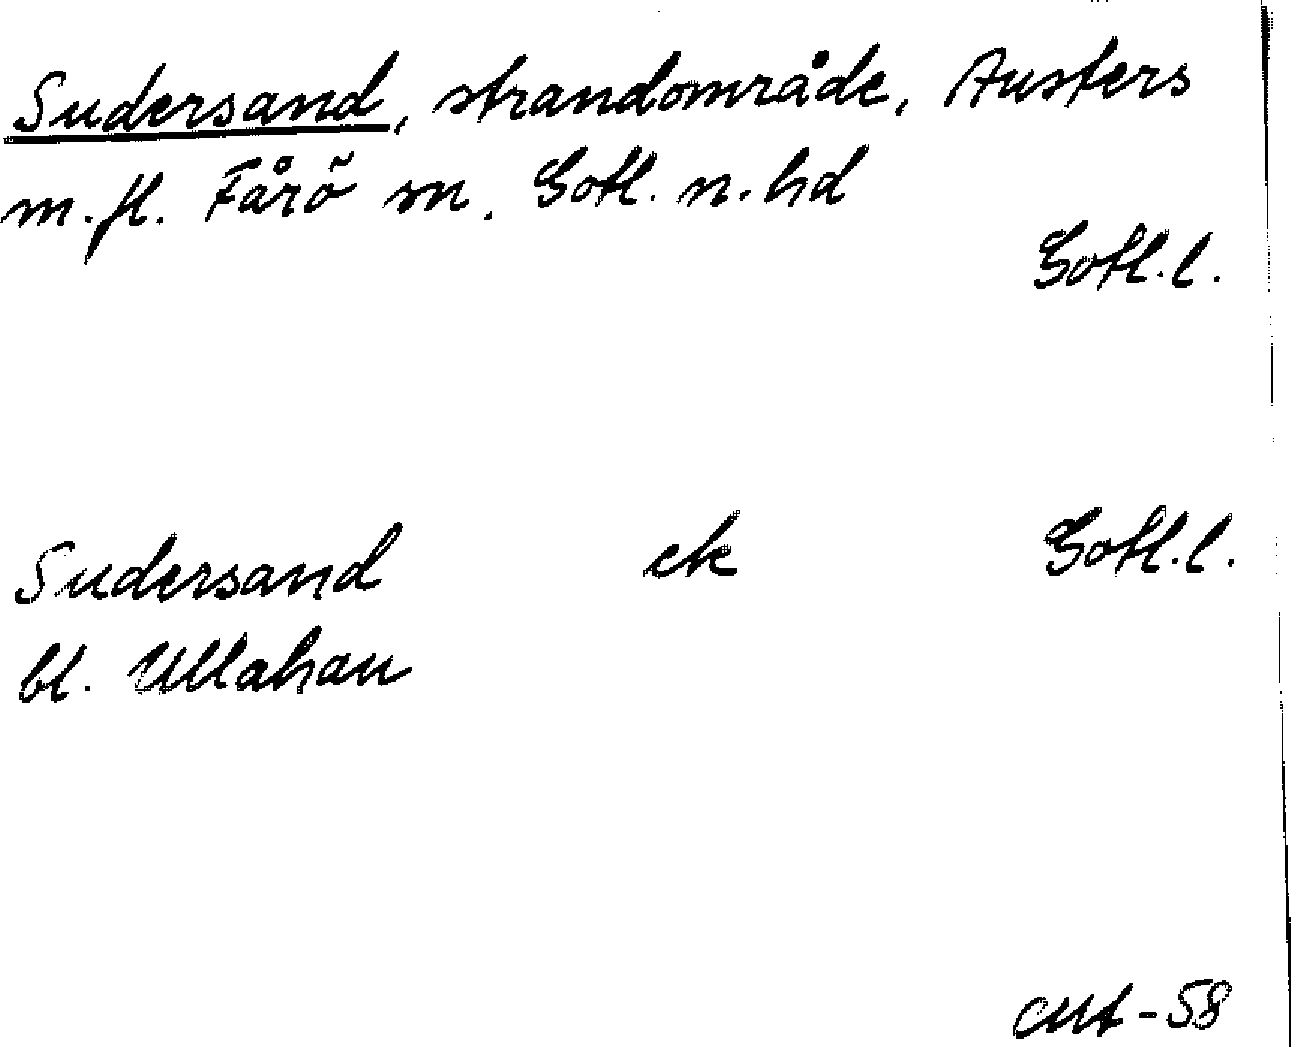 Sudersand, strandområde, Austers
m.fl. Fårö sn. Gotl. n. hd
Gotl.l.
Sudersand ek Gotl.l.
bl. Ullahau
-58